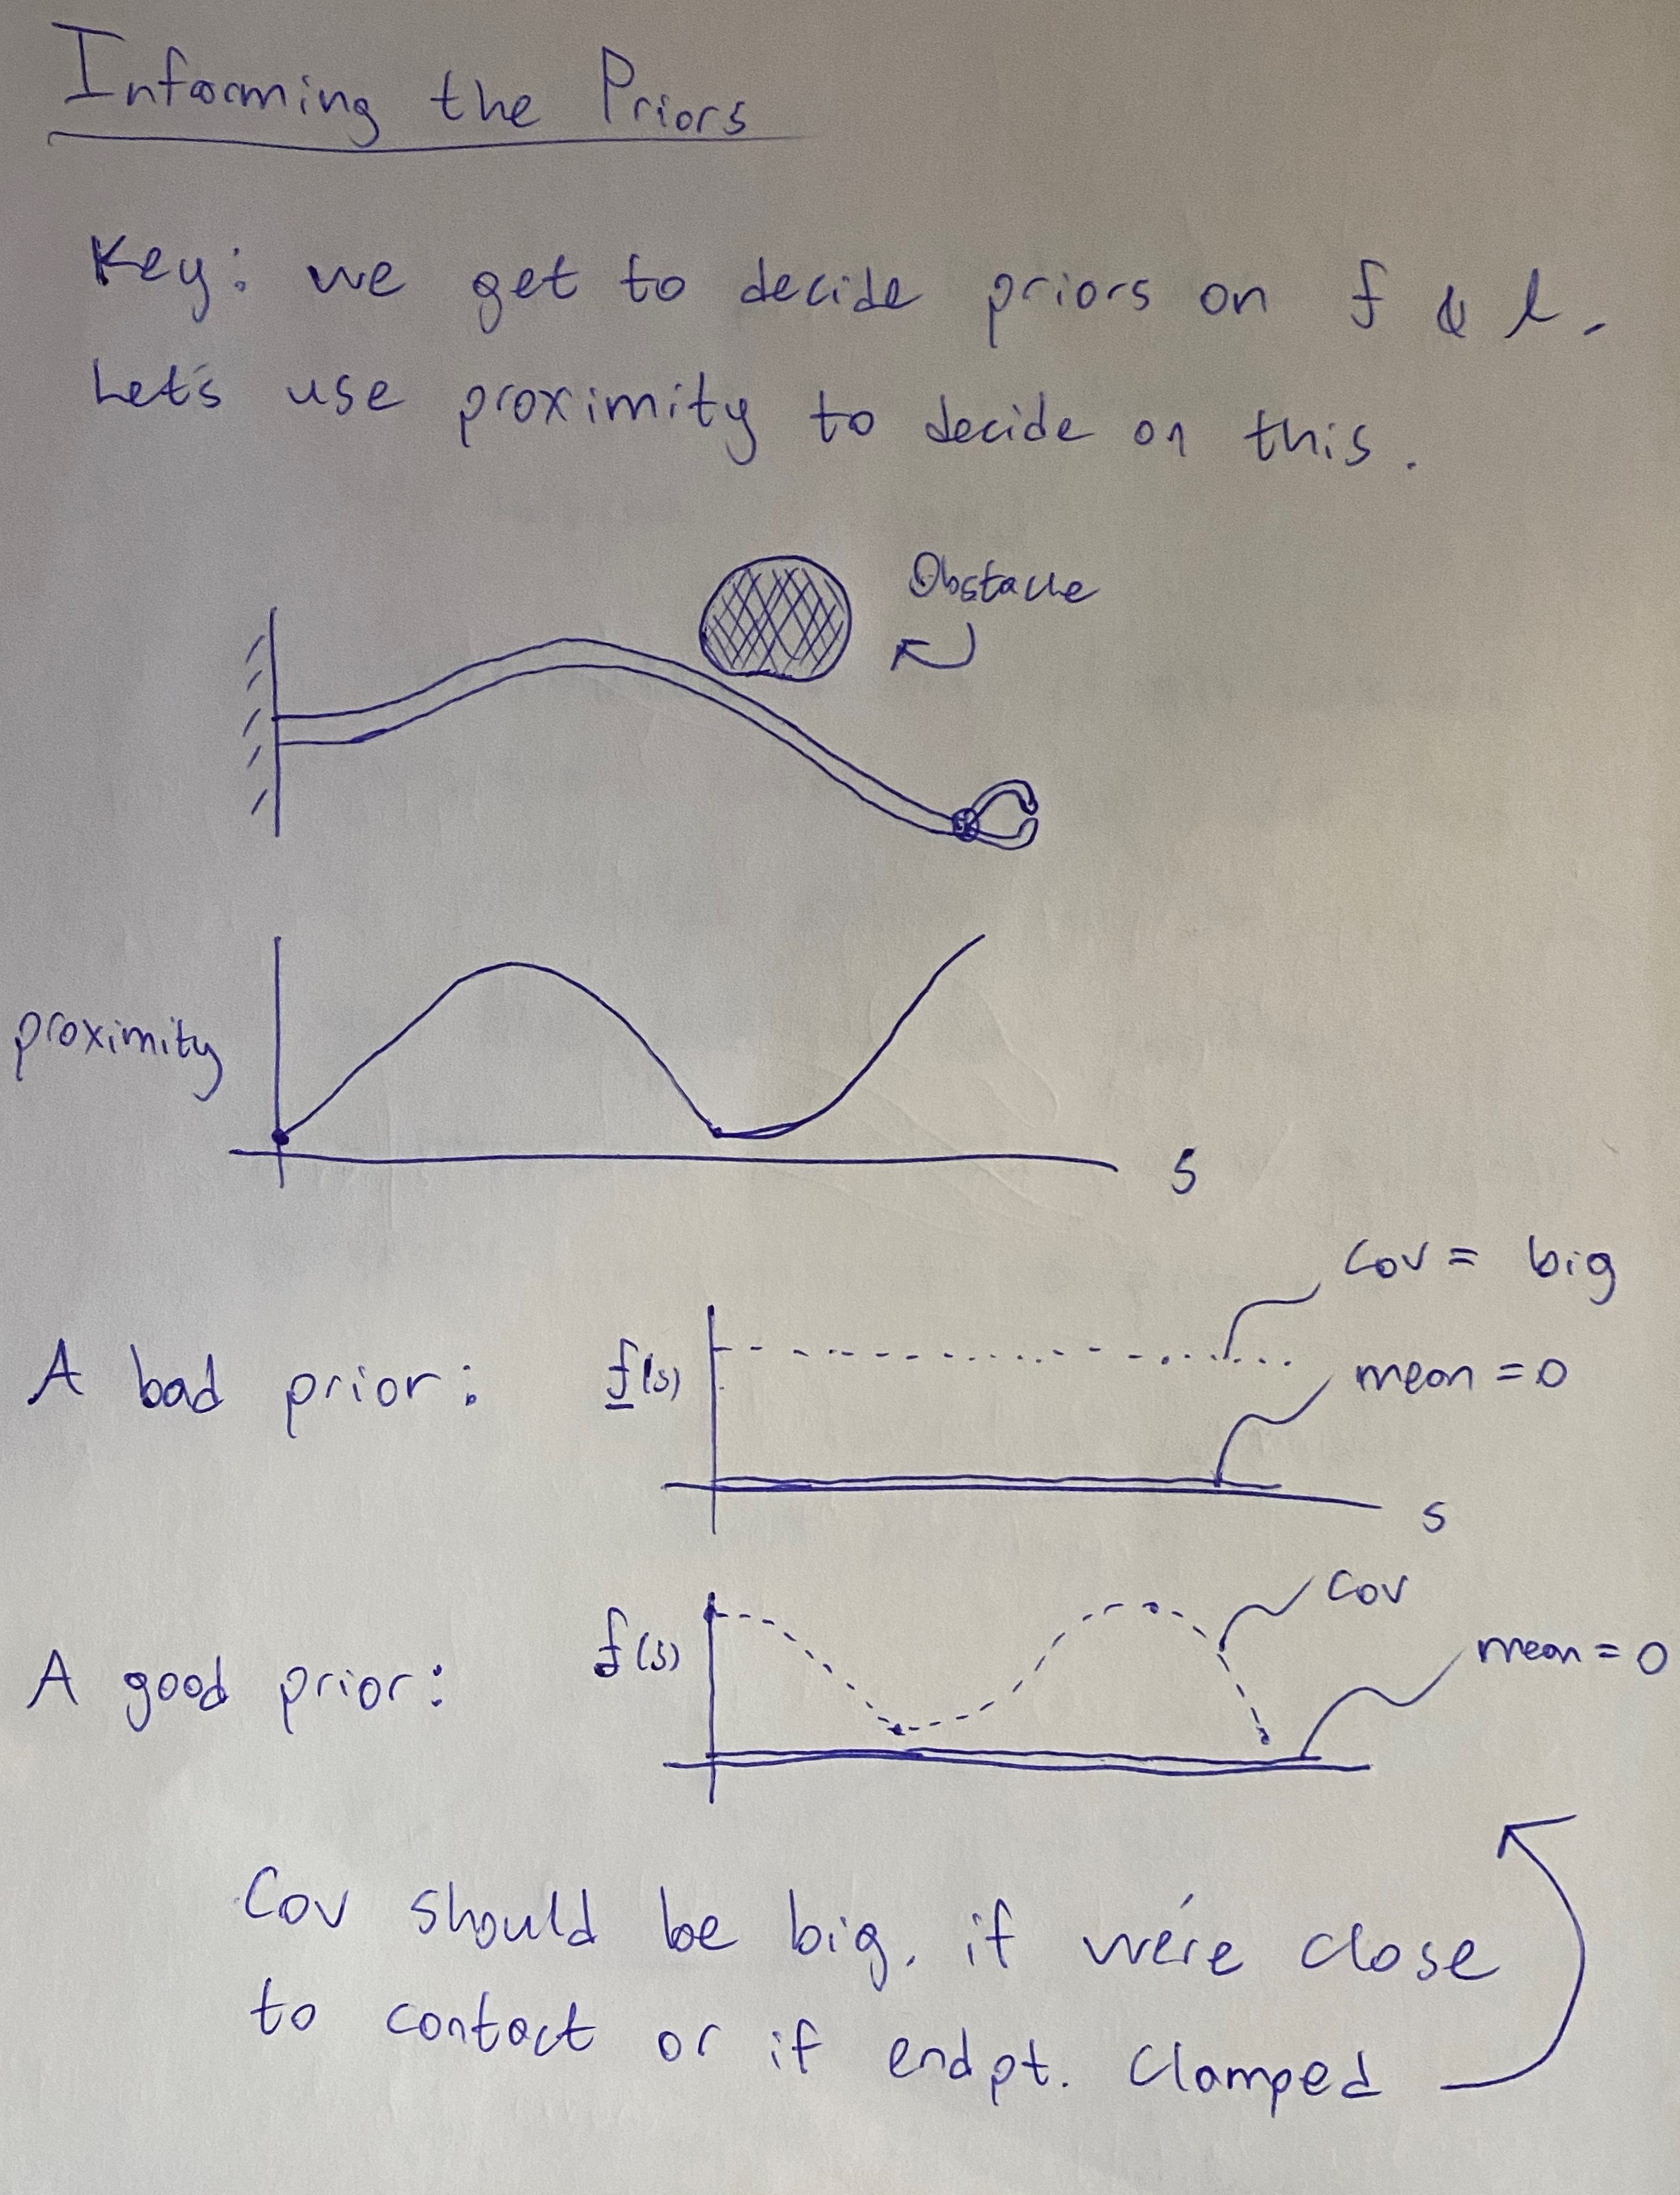 Informing the Priors
Key: we get to decide priors on f & l.
Let's use proximity to decide on this.
Obstacle
proximity
s
cov = big
A bad prior:
f(s)
mean = 0
s
cov
A good prior:
f(s)
mean = 0
Cov should be big, if we're close
to contact or if endpt. clamped